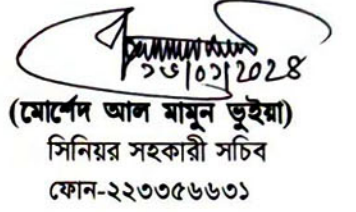 ১৬/০১/2028
(মোর্শেদ আল মামুন ভূইয়া)
সিনিয়র সহকারী সচিব
ফোন-২২৩৩৫৬৬৩১